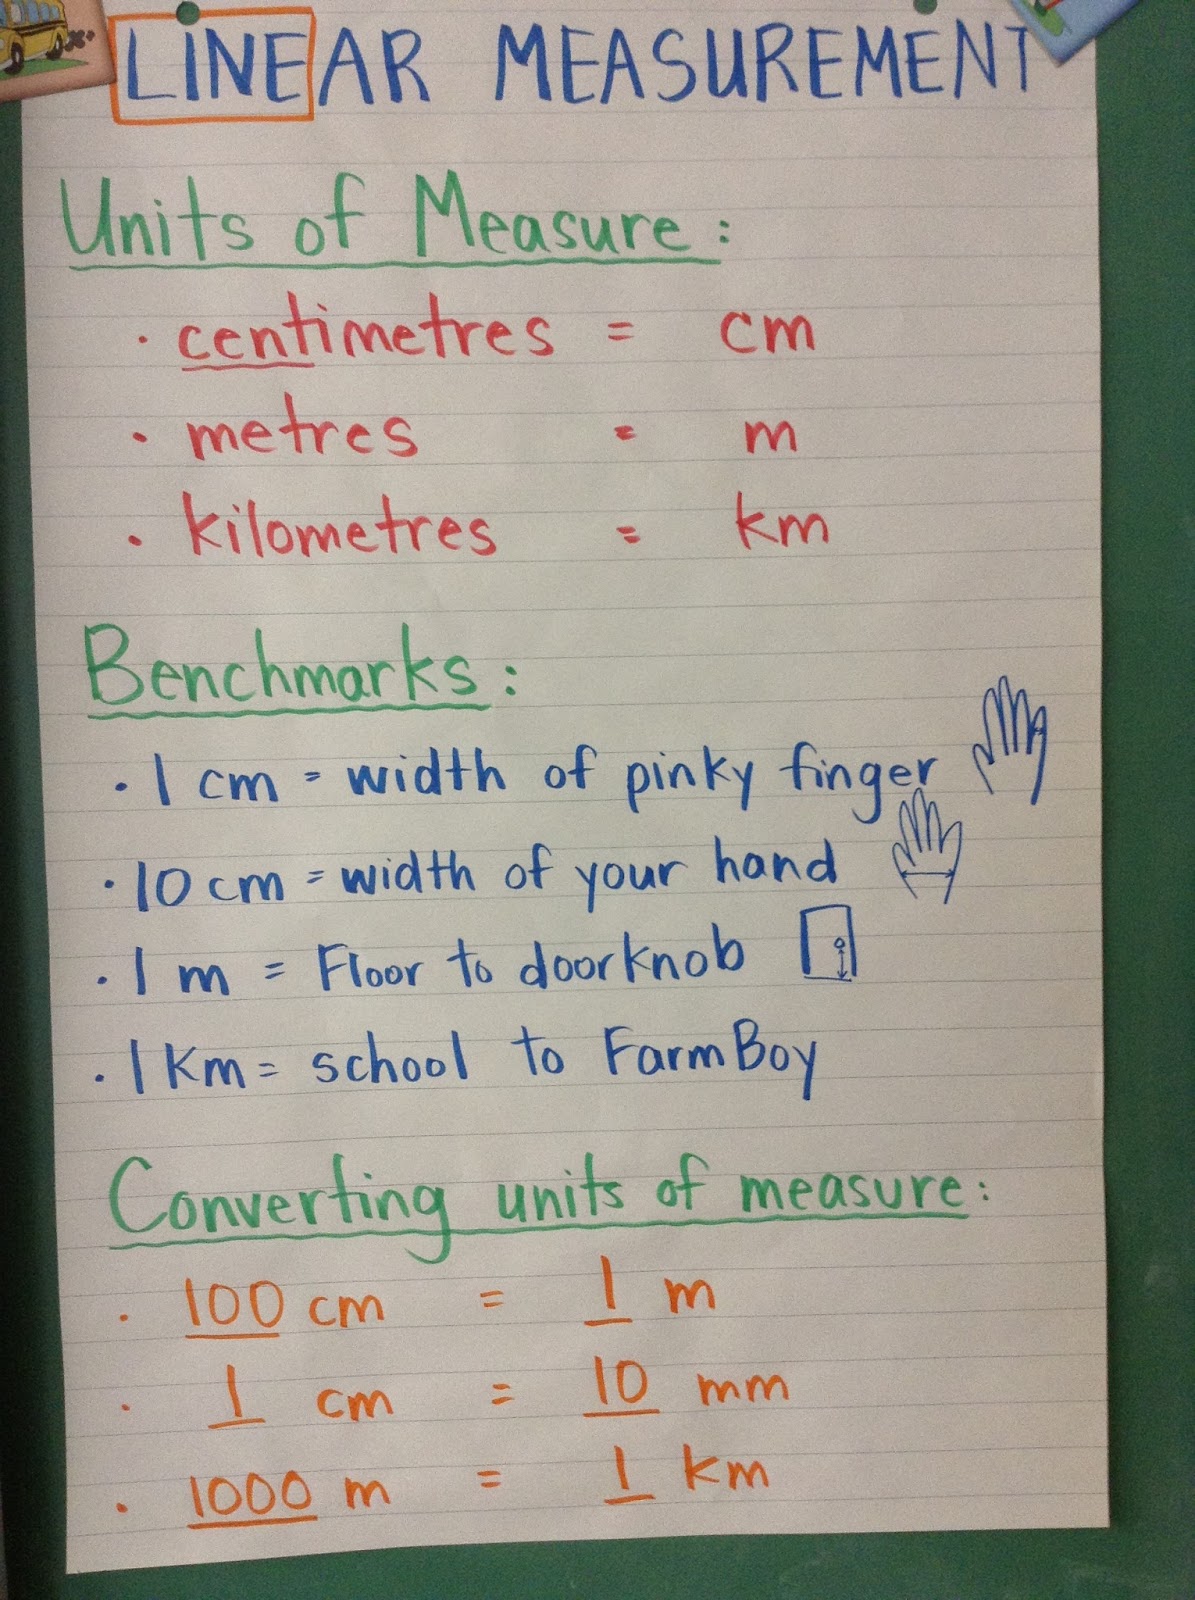 LINEAR MEASUREMENT
Units of Measure:
· centimetres = cm
· metres = m
· kilometres = km
Benchmarks:
· 1 cm = width of pinky finger
· 10 cm = width of your hand
· 1 m = Floor to doorknob
· 1 Km = school to Farm Boy
Converting units of measure:
· 100 cm = 1 m
· 1 cm = 10 mm
· 1000 m = 1 km